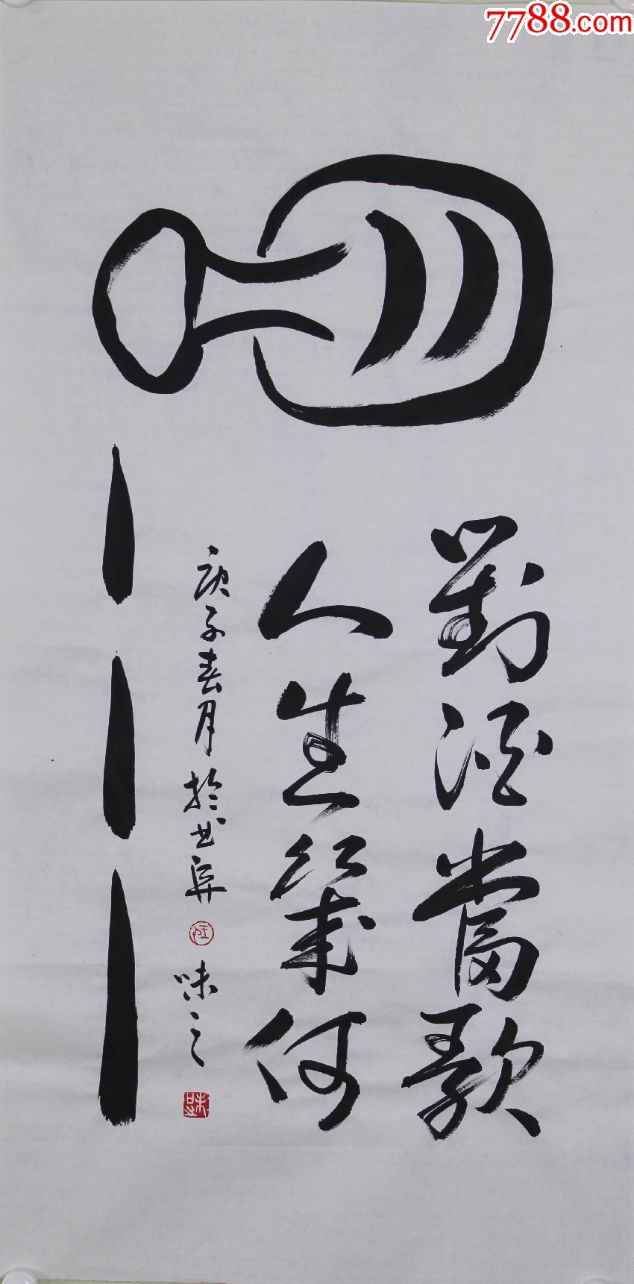 7788.com
對酒當歌
人生幾何
庚子春月於
味之